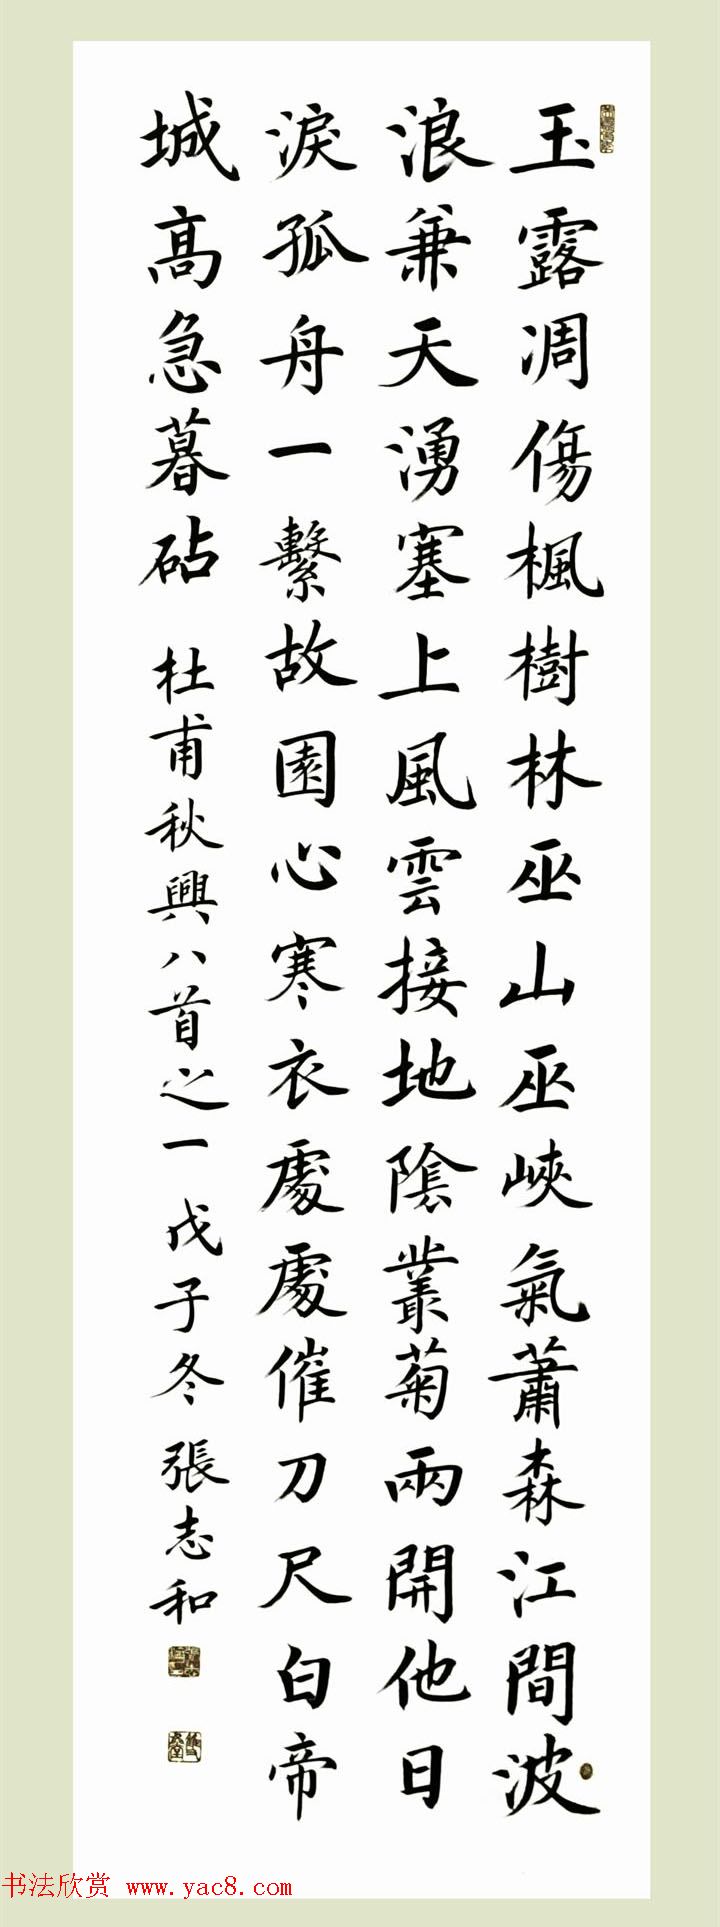 玉露凋傷楓樹林巫山巫峽氣蕭森江間波
浪兼天湧塞上風雲接地陰叢菊兩開他日
淚孤舟一繫故園心寒衣處處催刀尺白帝
城高急暮砧 杜甫秋興八首之一 戊子冬 張志和
书法欣赏 www.yac8.com